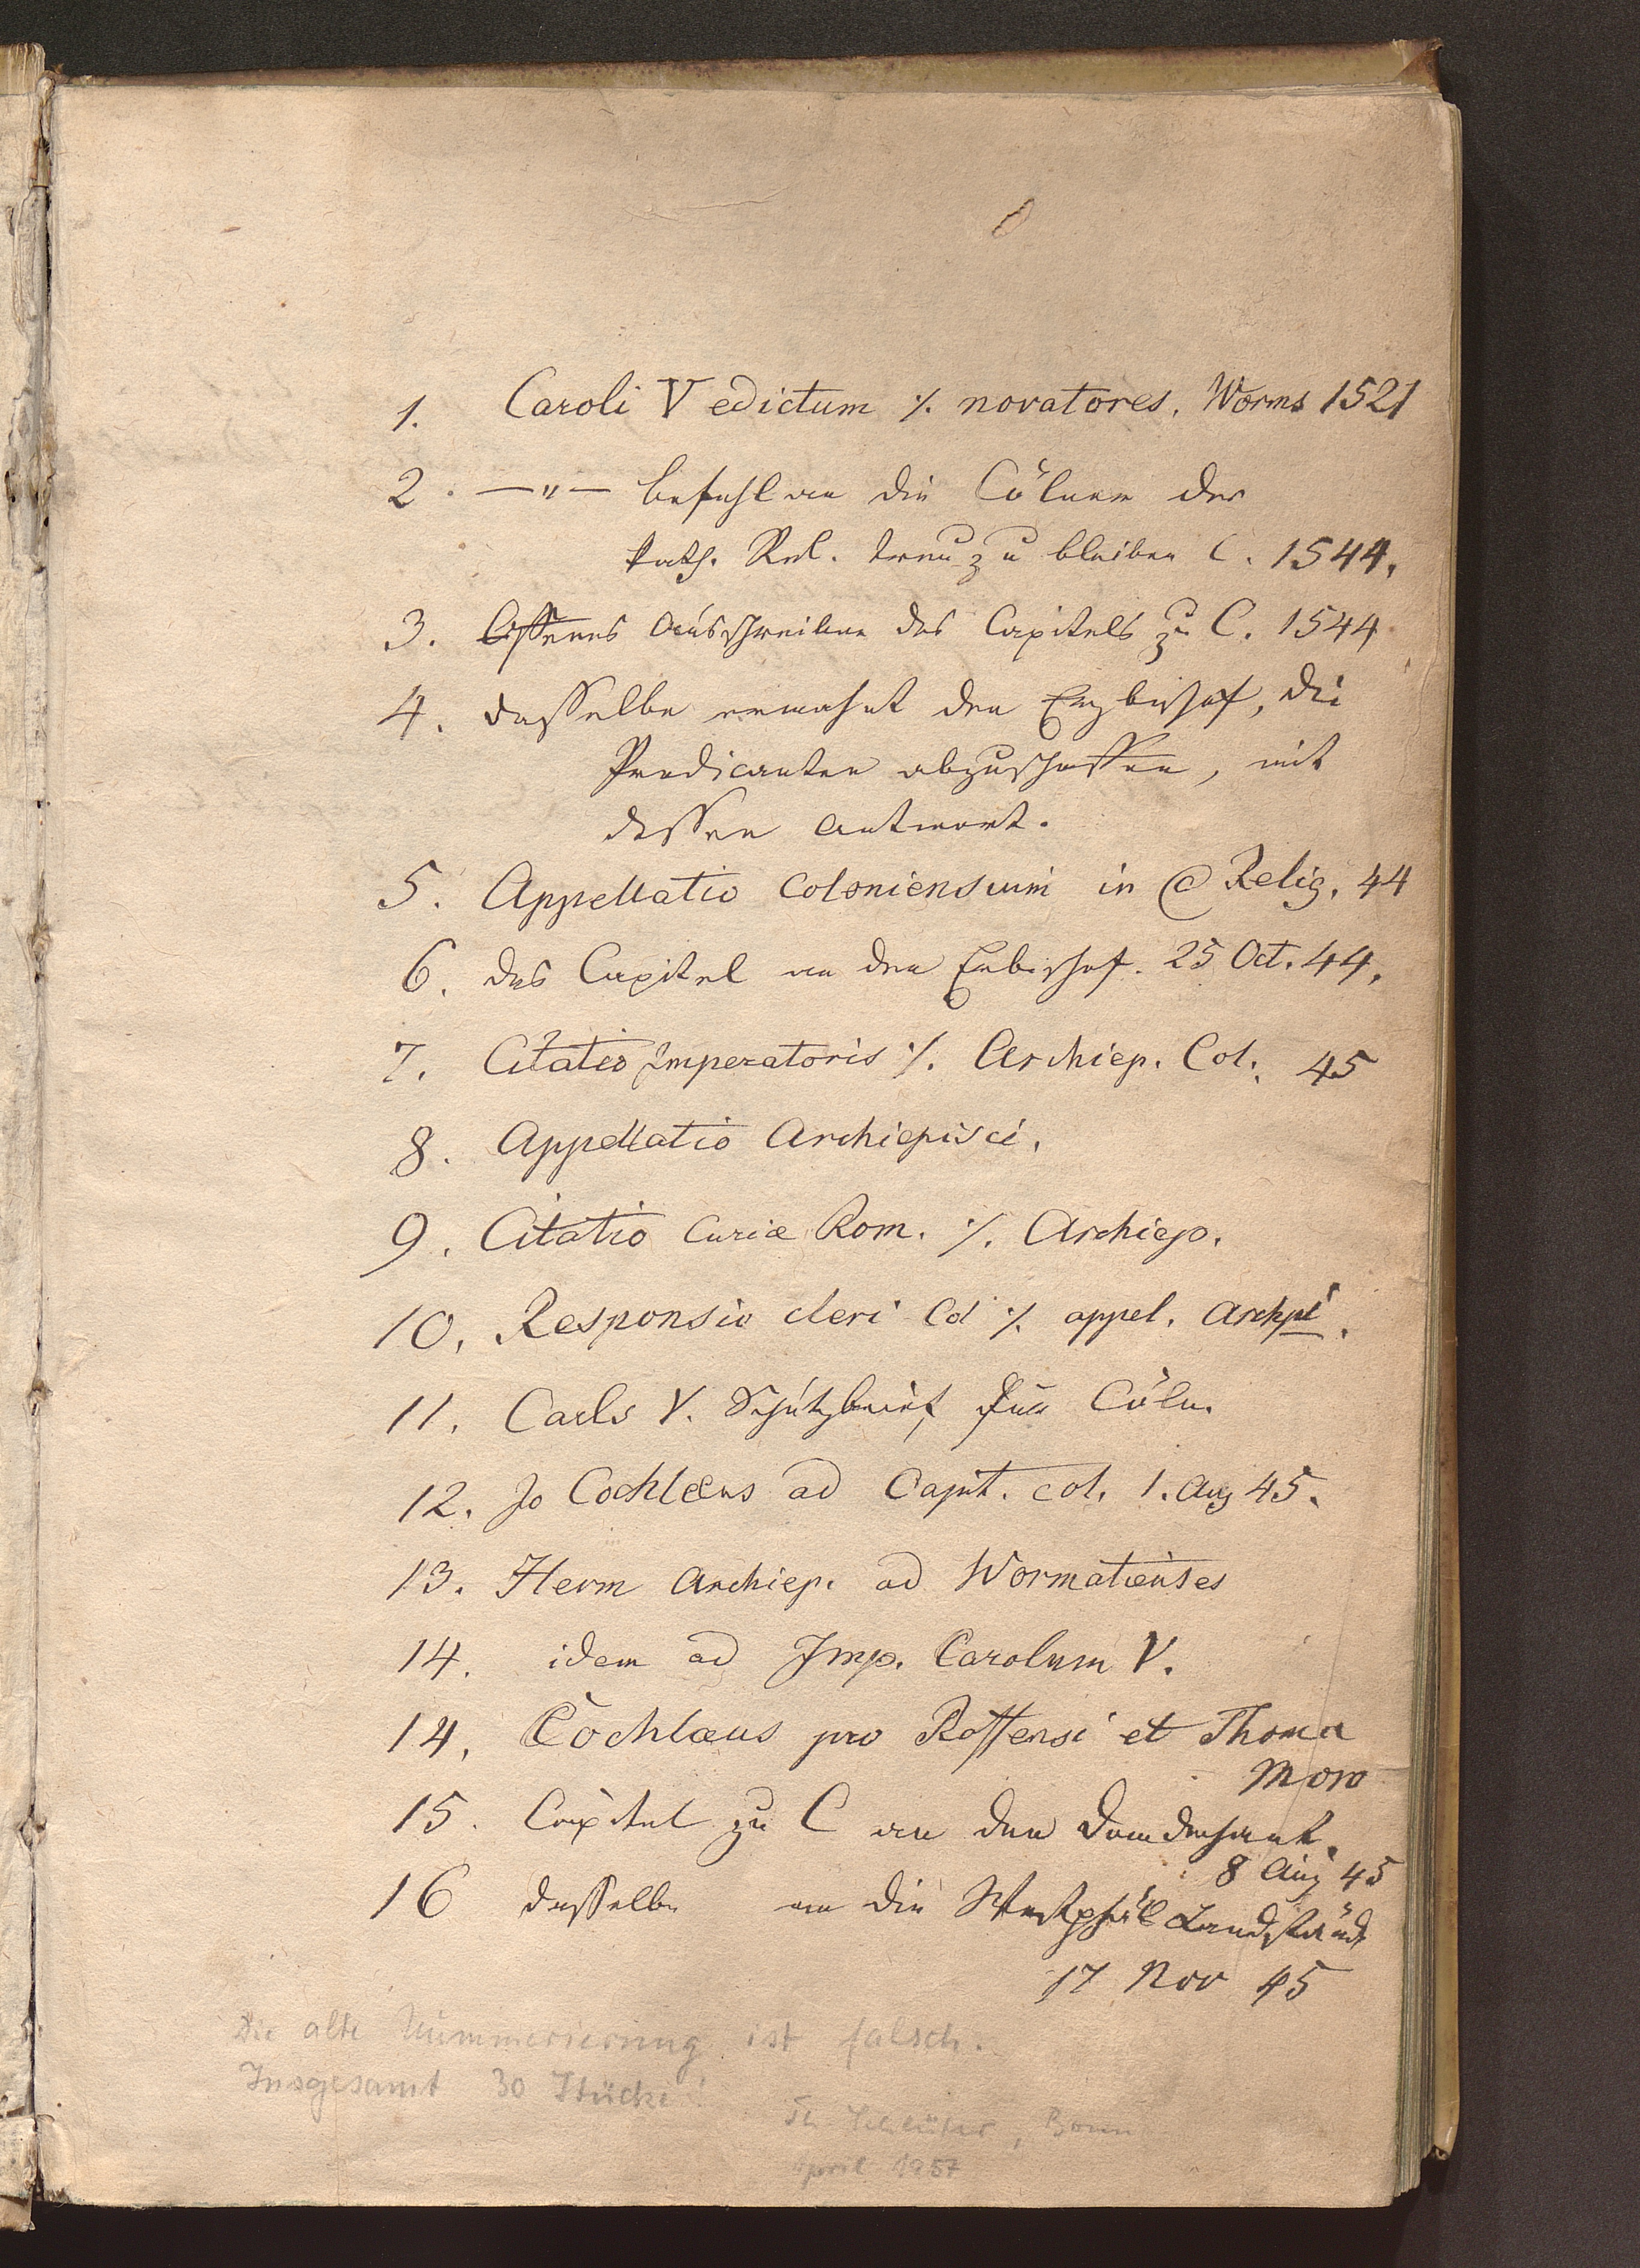 1. Caroli V edictum ·/. novatores. Worms 1521
2. —"— Befehl an die Cölner der
kath. Rel. treu zu bleiben C. 1544.
3. Offenes Ausschreiben des Capitels zu C. 1544
4. dasselbe ermahnt den Erzbischof, die
Predicanten abzuschaffen, mit
dessen Antwort.
5. Appellatio Coloniensium in C Relig. 44
6. das Capitel an den Erbischof. 25 Oct. 44.
7. Citatio Imperatoris ·/. Archiep. Col. 45
8. Appellatio Archiepisci.
9. Citatio Curiæ Rom. ·/. Archiep.
10. Responsio cleri Col ·/. appel. Archpi.
11. Carls V. Schutzbrief für Cöln.
12. Jo Cochlæus ad Capit. col. 1. Aug 45.
13. Herm Archiep. ad Wormatienses
14. idem ad Imp. Carolum V.
14. Cochlæus pro Roffensi et Thoma
Moro
15. Capitel zu C an den Domdechant.
8 Aug 45
16 dasselbe an die Westphäl Landständ
17 Nov 45
Die alte Nummerierung ist falsch.
Insgesamt 30 Stücke!
Th. Schlüter, Bonn
April 1957